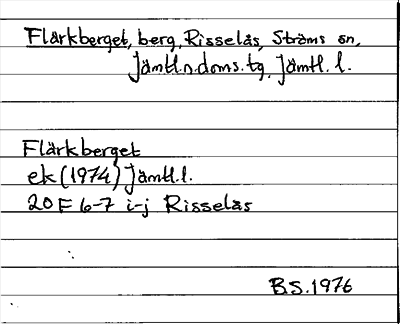 Flärkberget, berg, Risselås, Ströms sn,
Jämtl.n.doms.tg, Jämtl. l.
Flärkberget
ek (1974) Jämtl.l.
20 F 6-7 i-j Risselås
B.S. 1976